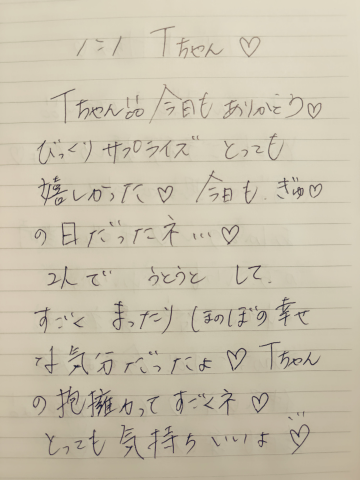 ハニハ Tちゃん♡
Tちゃん!! 今日も ありがとう♡
びっくりサプライズ とっても
嬉しかった♡ 今日も ぎゅ♡
の日だったネ…♡
2人で うとうと して、
すごく まったり ほのぼの幸せ
な気分だったよ♡ Tちゃん
の抱擁力って すごくネ♡
とっても 気持ちいいよ♡